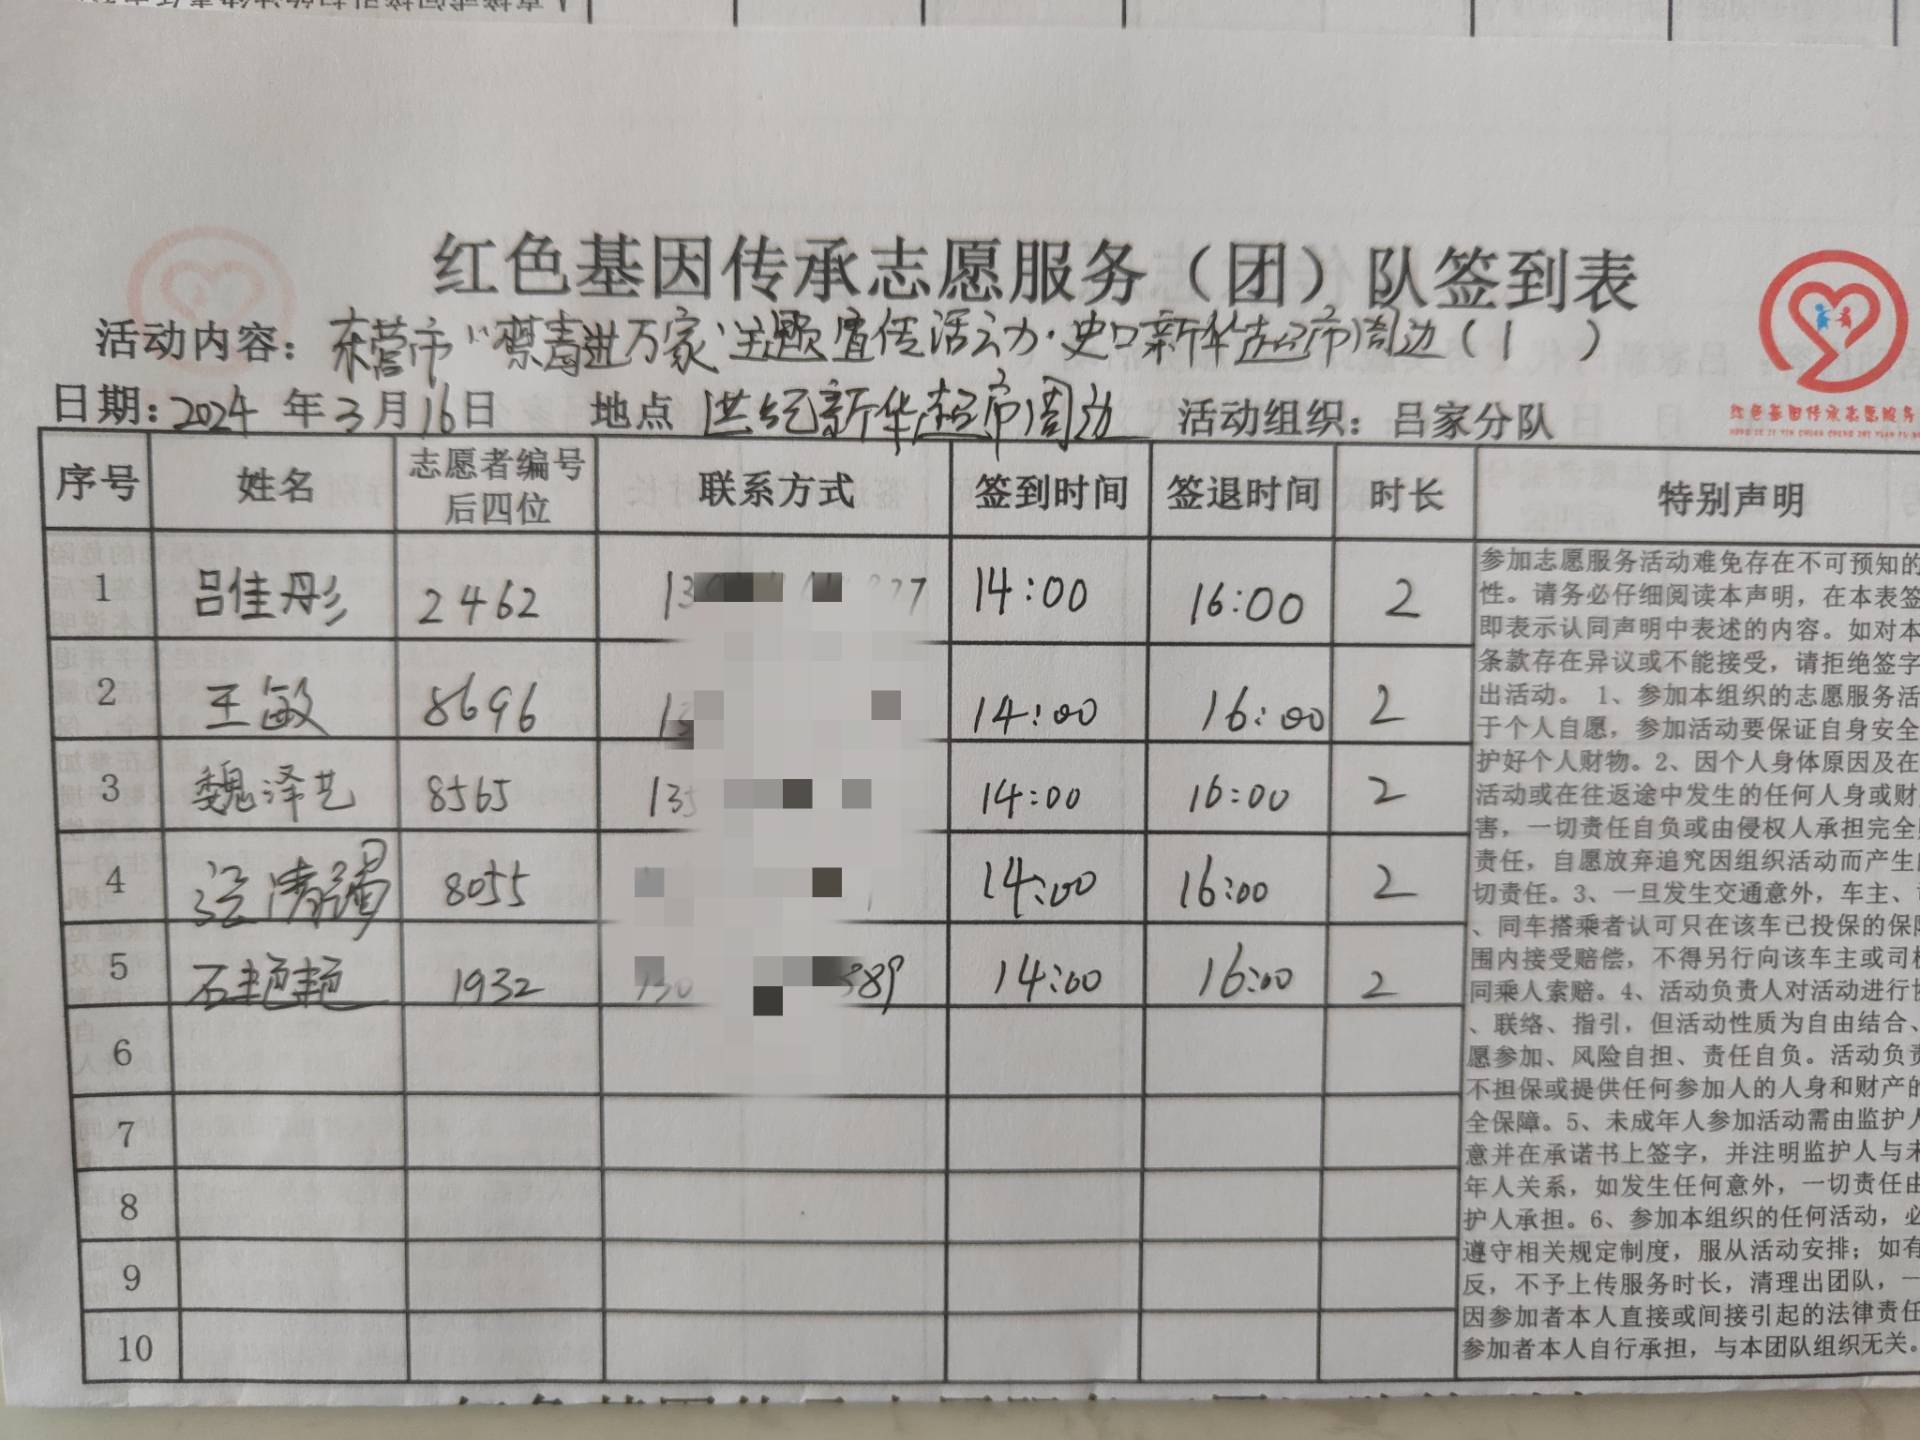 红色基因传承志愿服务（团）队签到表
活动内容：东营市“禁毒进万家”主题宣传活动·史口新华超市周边（1 ）
日期：2024年3月16日 地点 新华超市周边 活动组织：吕家分队
红色基因传承志愿服务
序号 姓名 志愿者编号后四位 联系方式 签到时间 签退时间 时长 特别声明
1 吕佳彤 2462 14:00 16:00 2
2 王敏 8696 14:00 16:00 2
3 魏泽艺 8565 135 14:00 16:00 2
4 8055 14:00 16:00 2
5 石艳艳 1932 130 389 14:00 16:00 2
6
7
8
9
10
参加志愿服务活动难免存在不可预知的
性。请务必仔细阅读本声明，在本表签
即表示认同声明中表述的内容。如对本
条款存在异议或不能接受，请拒绝签字
出活动。 1、参加本组织的志愿服务活
于个人自愿，参加活动要保证自身安全
护好个人财物。2、因个人身体原因及在
活动或在往返途中发生的任何人身或财
害，一切责任自负或由侵权人承担完全
责任，自愿放弃追究因组织活动而产生
切责任。3、一旦发生交通意外，车主、
、同车搭乘者认可只在该车已投保的保
围内接受赔偿，不得另行向该车主或司
同乘人索赔。4、活动负责人对活动进行
、联络、指引，但活动性质为自由结合、
愿参加、风险自担、责任自负。活动负责
不担保或提供任何参加人的人身和财产的
全保障。5、未成年人参加活动需由监护人
意并在承诺书上签字，并注明监护人与未
年人关系，如发生任何意外，一切责任由
护人承担。6、参加本组织的任何活动，必
遵守相关规定制度，服从活动安排；如有
反，不予上传服务时长，清理出团队，一
因参加者本人直接或间接引起的法律责任
参加者本人自行承担，与本团队组织无关。